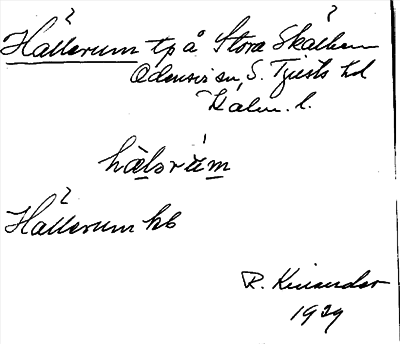 ?
Hällerum tp å Stora Skälhem
Odensvi sn, S. Tjusts hd
Kalm. l.
hälsrùm
?
Hällerum kb
R. Kinander
1929